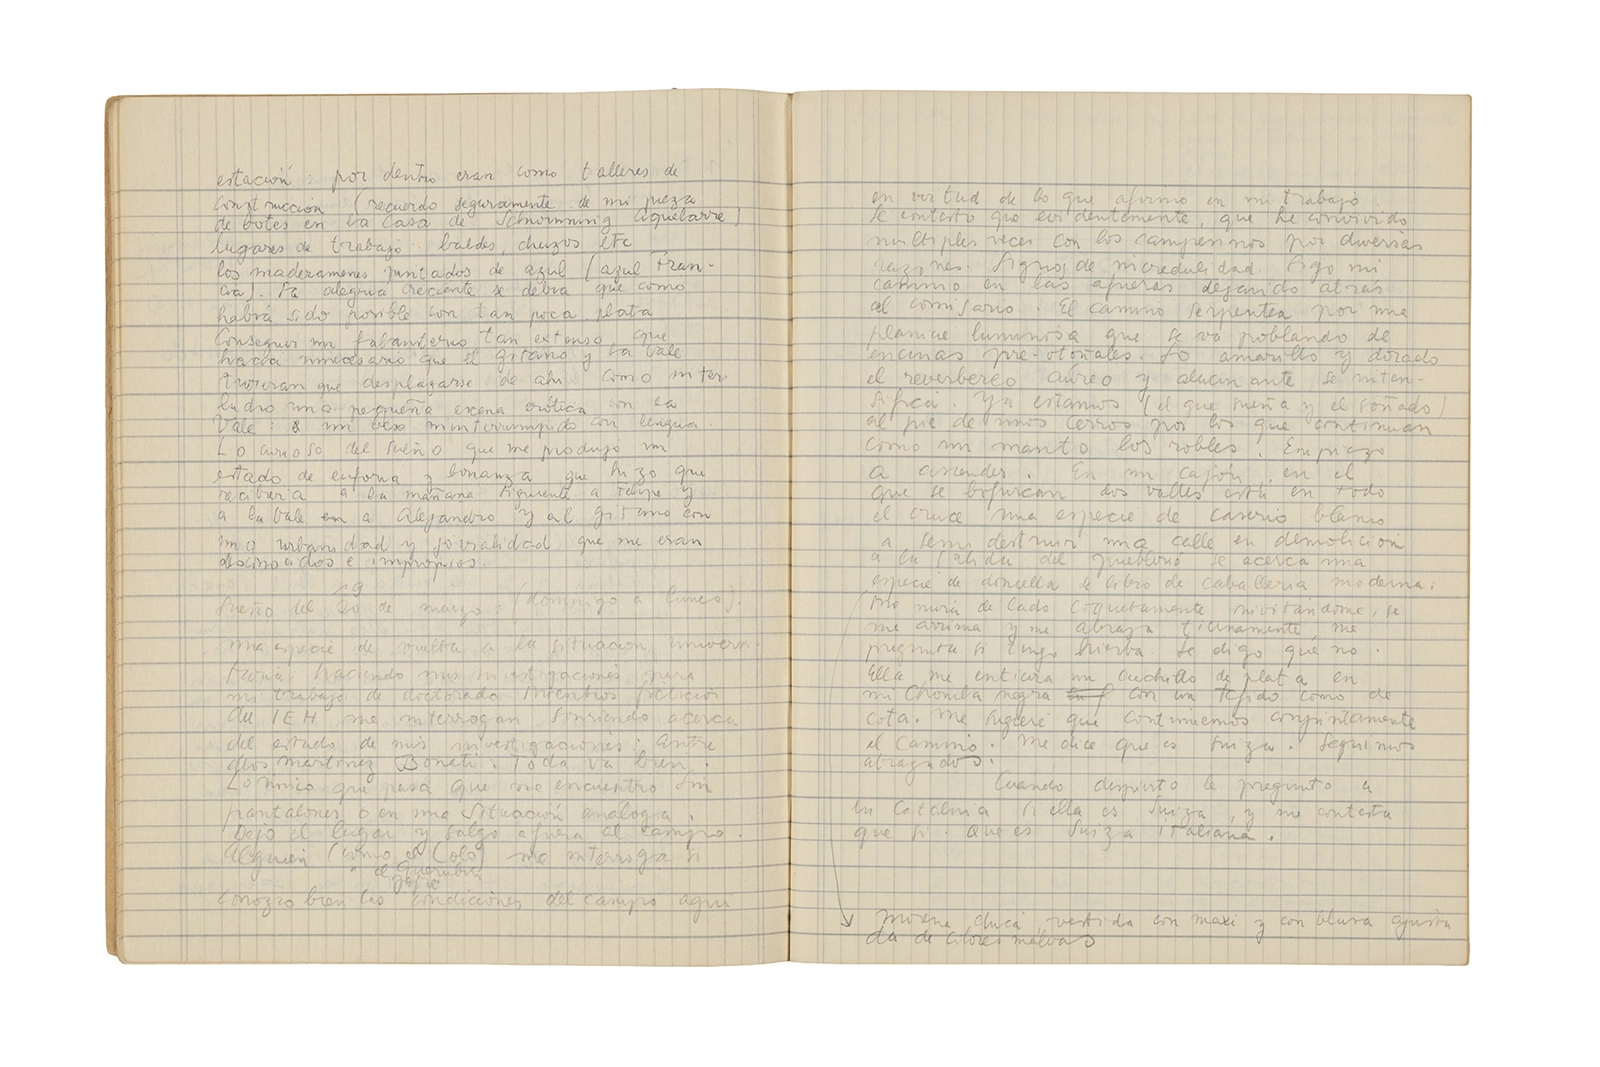 estación : por dentro eran como talleres de
construcción (recuerdo seguramente de mi pieza
de botes en la casa de Aguelarre)
lugares de trabajo baldes, chuzos etc
los maderamenes pintados de azul (azul Fran-
cia). La alegria creciente se debia que como
habrá sido posible con tan poca plata
conseguir un tan extenso que
hacia innecesario que el gitano y la Vale
tuvieran que desplazarse de ahi como inter-
ludio una pequeña escena erótica con la
Vale : un beso ininterrumpido con lengua.
Lo curioso del sueño que me produjo un
estado de euforia y bonanza que hizo que
recibiera a la mañana siguiente a Felipe y
a la Vale en a Alejandro y al gitano con
una urbanidad y jovialidad que me eran
desconocidos e impropios.
19
Sueño del 20 de marzo : (domingo a lunes).
una especie de vuelta a la situación univers.
Estaría haciendo mis investigaciones para
mi trabajo de doctorado Miembros
du IEH me interrogan sonriendo acerca
del estado de mis investigaciones. Entre
ellos martínez Bonati. Toda va bien.
Lo único que pasa que me encuentro sin
pantalones o en una situación análoga.
Dejo el lugar y salgo afuera al campo.
Alguien (como el Colo) me interroga si
o el Querubín
conozco bien las condiciones del campo aqui
en virtud de lo que afirmo en mi trabajo.
Le contesto que evidentemente, que he convivido
multiples veces con los campesinos por diversas
razones. Signos de incredulidad. Sigo mi
camino en las afueras dejando atras
al comisario. El camino serpentea por una
planicie luminosa que se va poblando de
encinas pre-otoñales. Lo amarillo y dorado
el reverbereo aúreo y alucinante se inten-
sifica. Ya estamos (el que sueña y el soñado)
al pie de unos cerros por los que continuan
como un manto los robles. Empiezo
a ascender. En un cajón, en el
que se bifurcan dos valles está en todo
el cruce una especie de caserio blanco
a semi destruir una calle en demolición
a la salida del pueblorio se acerca una
especie de doncella de libro de caballeria moderna:
me mira de lado coquetamente invitándome, se
me arrima y me abraza tiernamente, me
pregunta si tengo hierba. Le digo que no.
Ella me entierra un cuchillo de plata en
mi chomba negra con un tejido como de
cota. Me sugiere que continuemos conjuntamente
el camino. Me dice que es suiza. Seguimos
abrazados.
Cuando despierto le pregunto a
la Catalina si ella es suiza, y me contesta
que si. Que es suiza italiana.
morena, chica, vestida con maxi y con blusa ajusta
da de colores malvas